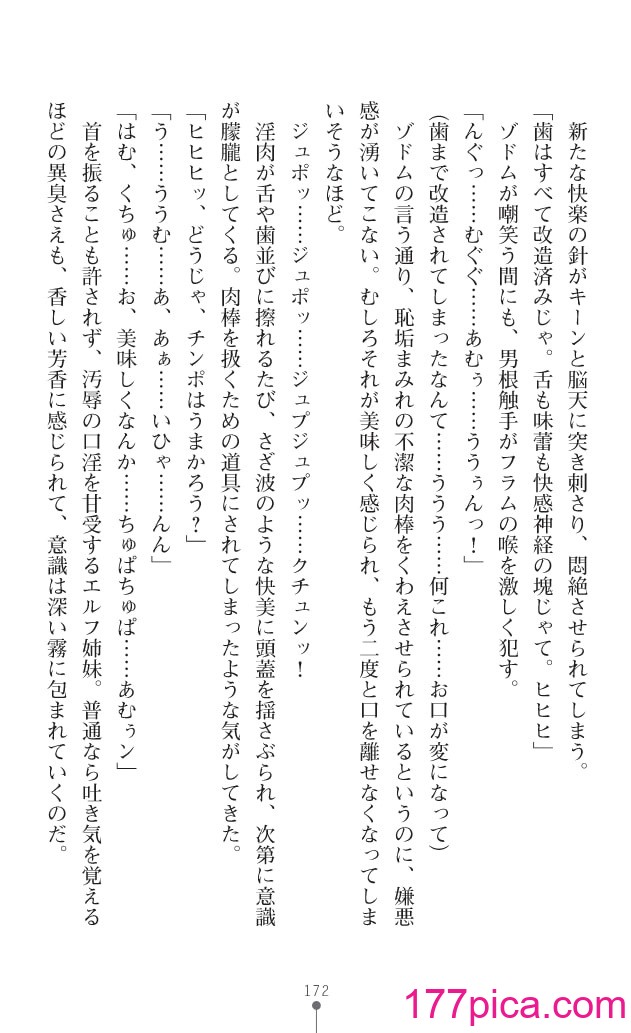 新たな快楽の針がキーンと脳天に突き刺さり、悶絶させられてしまう。
「歯はすべて改造済みじゃ。舌も味蕾も快感神経の塊じゃて。ヒヒヒ」
ゾドムが嘲笑う間にも、男根触手がフラムの喉を激しく犯す。
「んぐっ……むぐぐ……あむぅ……ううぅんっ！」
（歯まで改造されてしまったなんて……ううう……何これ……お口が変になって）
ゾドムの言う通り、恥垢まみれの不潔な肉棒をくわえさせられているというのに、嫌悪
感が湧いてこない。むしろそれが美味しく感じられ、もう二度と口を離せなくなってしま
いそうなほど。
ジュポッ……ジュポッ……ジュプジュプッ……クチュンッ！
淫肉が舌や歯並びに擦れるたび、さざ波のような快美に頭蓋を揺さぶられ、次第に意識
が朦朧としてくる。肉棒を扱くための道具にされてしまったような気がしてきた。
「ヒヒヒッ、どうじゃ、チンポはうまかろう？」
「う……ううむ……あ、あぁ……いひゃ……んん」
「はむ、くちゅ……お、美味しくなんか……ちゅぱちゅぱ……あむぅン」
首を振ることも許されず、汚辱の口淫を甘受するエルフ姉妹。普通なら吐き気を覚える
ほどの異臭さえも、香しい芳香に感じられて、意識は深い霧に包まれていくのだ。
172
177pica.com